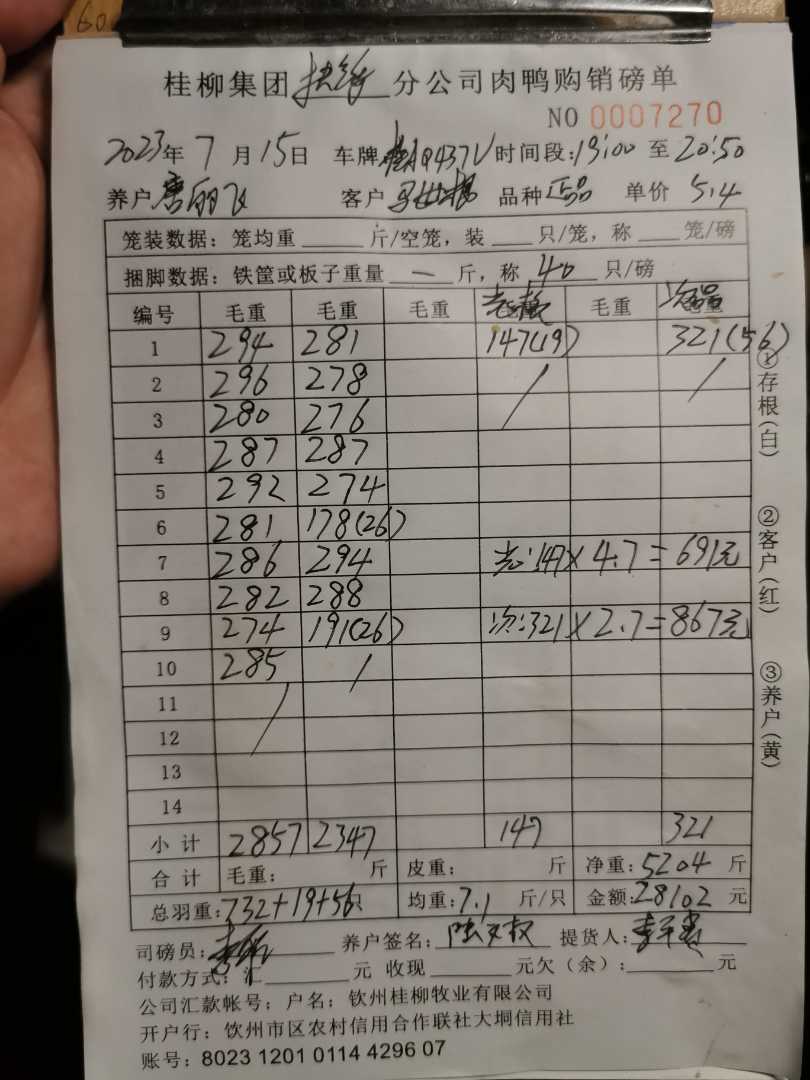 60
桂柳集团 扶绥 分公司肉鸭购销磅单
NO 0007270
2023年 7 月 15日 车牌 桂AQ437V 时间段:19:00 至 20:50
养户 客户 品种 正品 单价 5.4
笼装数据: 笼均重 斤/空笼, 装 只/笼, 称 笼/磅
捆脚数据: 铁筐或板子重量 一 斤, 称 40 只/磅
编号 毛重 毛重 毛重 毛重
1 294 281 147(19) 321(56)
2 296 278 / /
3 280 276
4 287 287
5 292 274
6 281 178(26)
7 286 294 光:147×4.7=691元
8 282 288
9 274 191(26) 次:321×2.7=867元
10 285 /
11 /
12
13
14
小 计 2857 2347 147 321
合 计 毛重: 斤 皮重: 斤 净重:5204 斤
总羽重:732+19+56只 均重:7.1 斤/只 金额:28102 元
司磅员: 养户签名: 提货人:
付款方式:汇 元 收现 元欠(余): 元
公司汇款帐号; 户名; 钦州桂柳牧业有限公司
开户行: 钦州市区农村信用合作联社大垌信用社
账号: 8023 1201 0114 4296 07
①存根(白)
②客户(红)
③养户(黄)